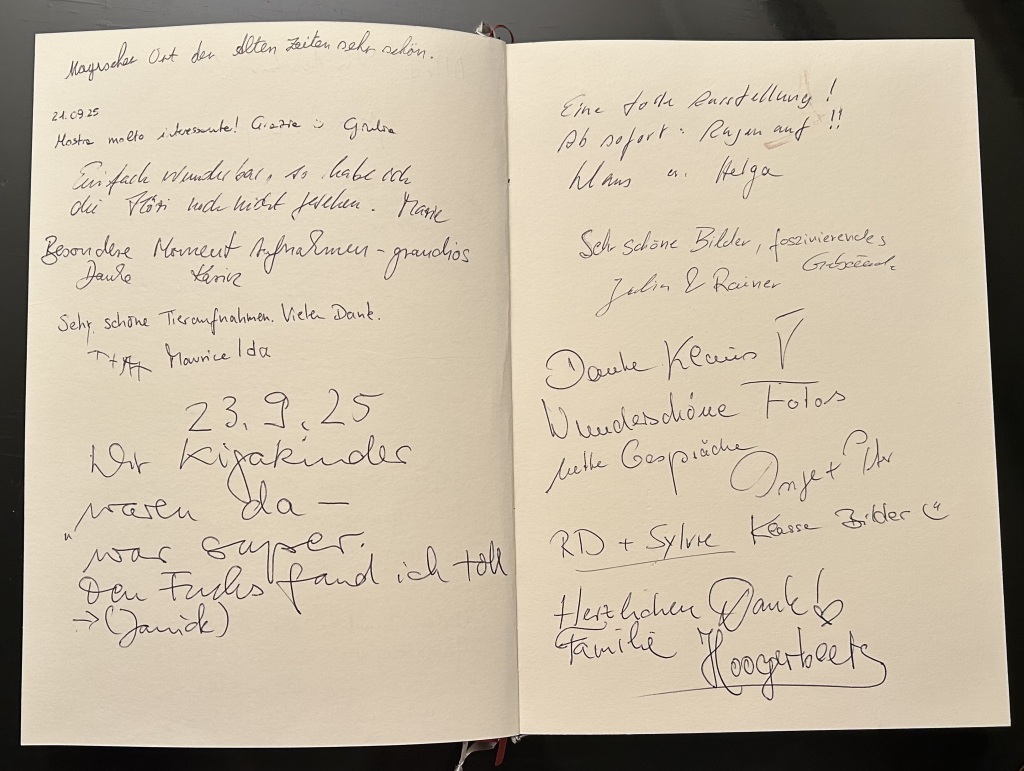 Magischer Ort der Alten Zeiten sehr schön.
21.09.25
Mostra molto interessante! Grazie Giulia
Einfach wunderbar, so habe ich
die noch nicht gesehen. Marie
Besondere Moment Aufnahmen - grandios
Danke Karin
Sehr schöne Tieraufnahmen. Vielen Dank.
Maurice Ida
23.9.25
Wir Kigakinder
waren da -
"war super.
Den Fuchs fand ich toll
→ (Janick)
Eine tolle Ausstellung!
Ab sofort: Augen auf!!
Klaus u. Helga
Sehr schöne Bilder, faszinierendes
Julia & Rainer
Danke Klaus
Wunderschöne Fotos
nette Gespräche
RD + Sylvie Klasse Bilder
Herzlichen Dank! ♡
Familie Hoogerbeets